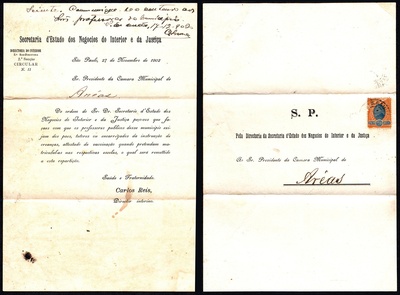 Secretaria d'Estado dos Negocios do Interior e da Justiça
DIRECTORIA DO INTERIOR
2.ª Sub-Directoria
2.ª Secção
CIRCULAR
São Paulo, 27 de Novembro de 1902
Sr. Presidente da Camara Municipal de
Arêas
De ordem do Sr. Dr. Secretario d'Estado dos
Negocios do Interior e da Justiça peço-vos que façaes
com que os professores publicos desse municipio exijam
dos paes, tutores ou encarregados da educação de
creanças, attestado de vaccinação quando pretendam ma-
triculal-as nas respectivas escolas, o qual será remettido
a esta repartição.
Saude e Fraternidade.
Carlos Reis,
Director interino.
S. P.
Pela Directoria da Secretaria d'Estado dos Negocios do Interior e da Justiça
Ao Sr. Presidente da Camara Municipal de
Arêas